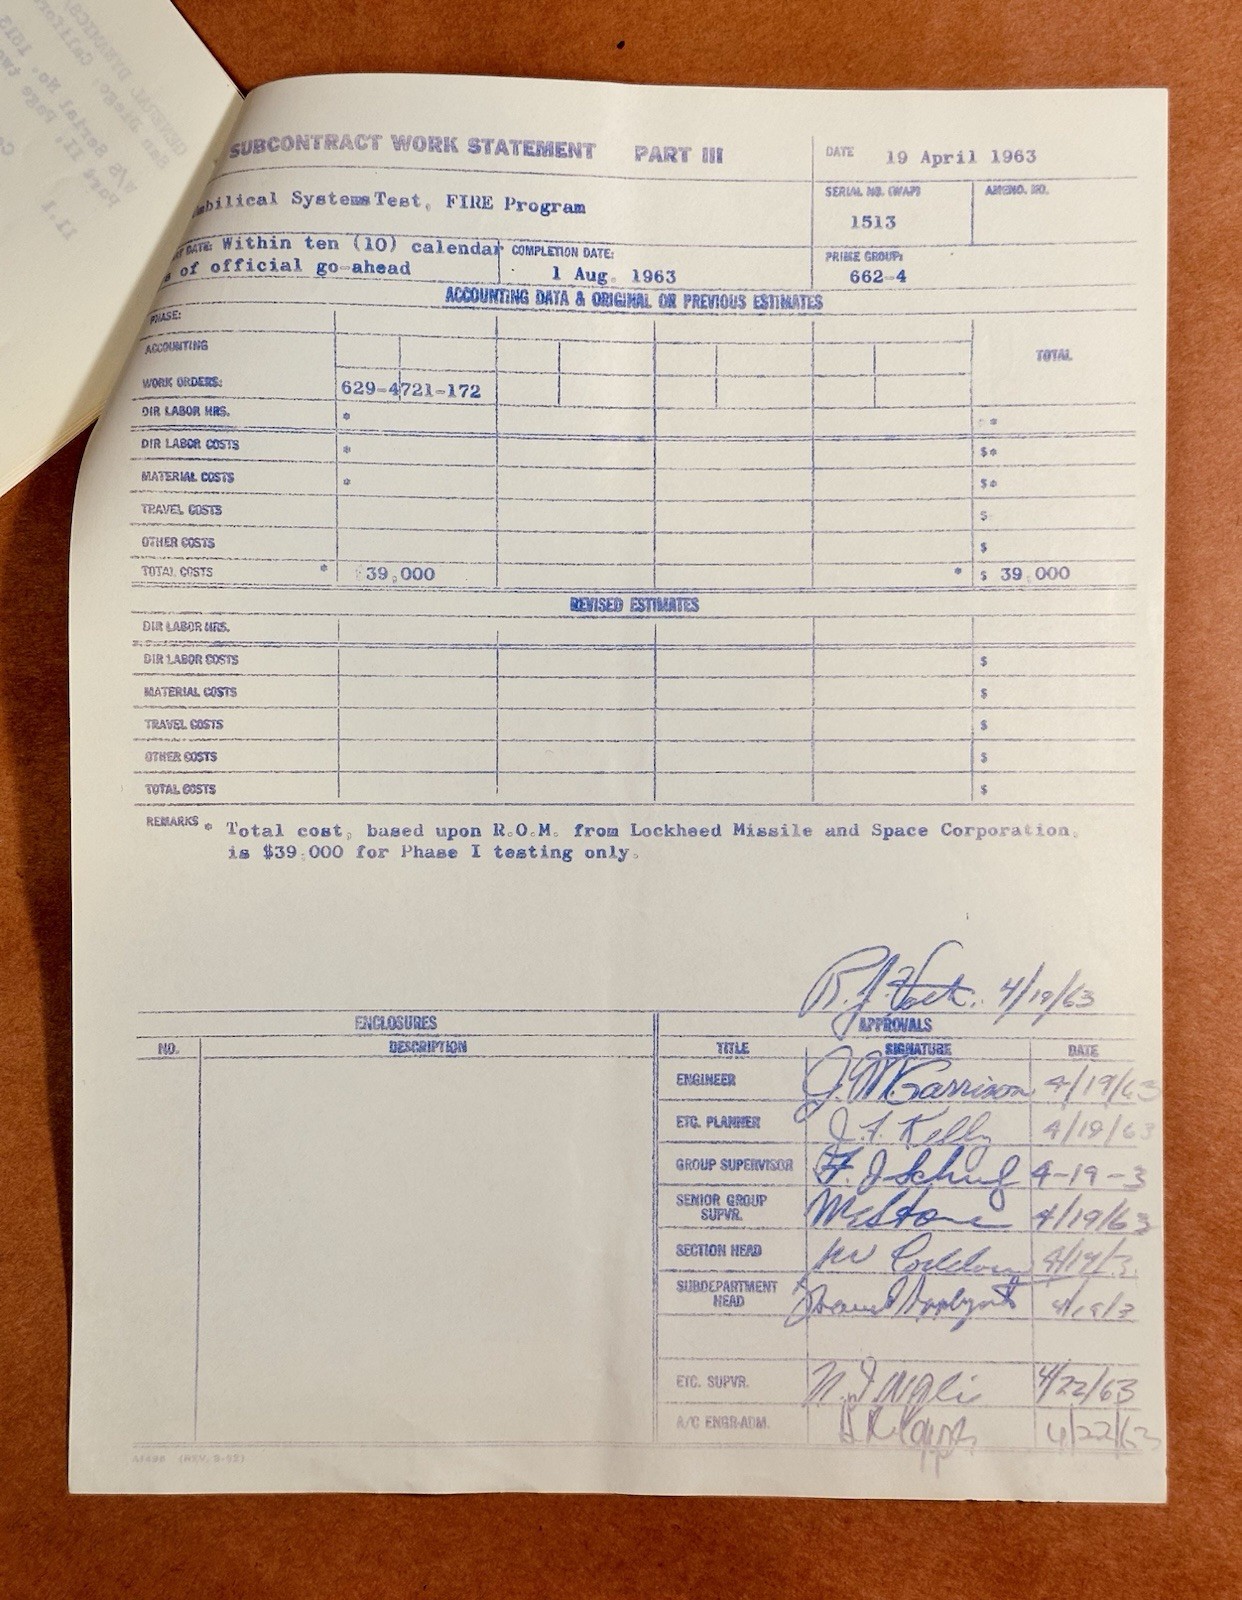 SUBCONTRACT WORK STATEMENT PART III
DATE 19 April 1963
mbilical Systems Test, FIRE Program
SERIAL NO. (WAP) AMEND. NO.
1513
DATE: Within ten (10) calendar
of official go-ahead
COMPLETION DATE:
1 Aug. 1963
PRIME GROUP:
662-4
ACCOUNTING DATA & ORIGINAL OR PREVIOUS ESTIMATES
PHASE:
ACCOUNTING
TOTAL
WORK ORDERS: 629-4721-172
DIR LABOR HRS. * *
DIR LABOR COSTS * $*
MATERIAL COSTS * $*
TRAVEL COSTS $
OTHER COSTS $
TOTAL COSTS * 39,000 * $ 39,000
REVISED ESTIMATES
DIR LABOR HRS.
DIR LABOR COSTS $
MATERIAL COSTS $
TRAVEL COSTS $
OTHER COSTS $
TOTAL COSTS $
REMARKS * Total cost, based upon R.O.M. from Lockheed Missile and Space Corporation,
is $39,000 for Phase I testing only.
4/19/63
ENCLOSURES
NO. DESCRIPTION
APPROVALS
TITLE SIGNATURE DATE
ENGINEER J. M. Garrison 4/19/63
ETC. PLANNER J. F. Kelly 4/19/63
GROUP SUPERVISOR 4-19-3
SENIOR GROUP
SUPVR. 4/19/63
SECTION HEAD 4/19/3
SUBDEPARTMENT
HEAD 4/19/3
ETC. SUPVR. 4/22/63
A/C ENGR-ADM. 4/22/63
GENERAL DYNAMICS/
San Diego, Califor
A/S Serial No. 1513
Part II, Page two